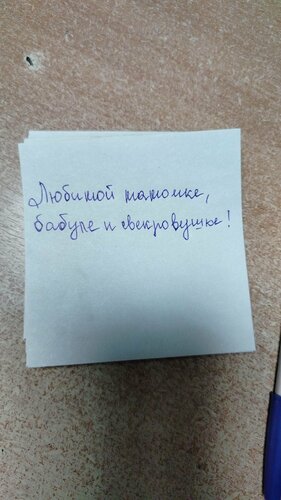 Любимой мамочке,
бабуле и свекровушке!